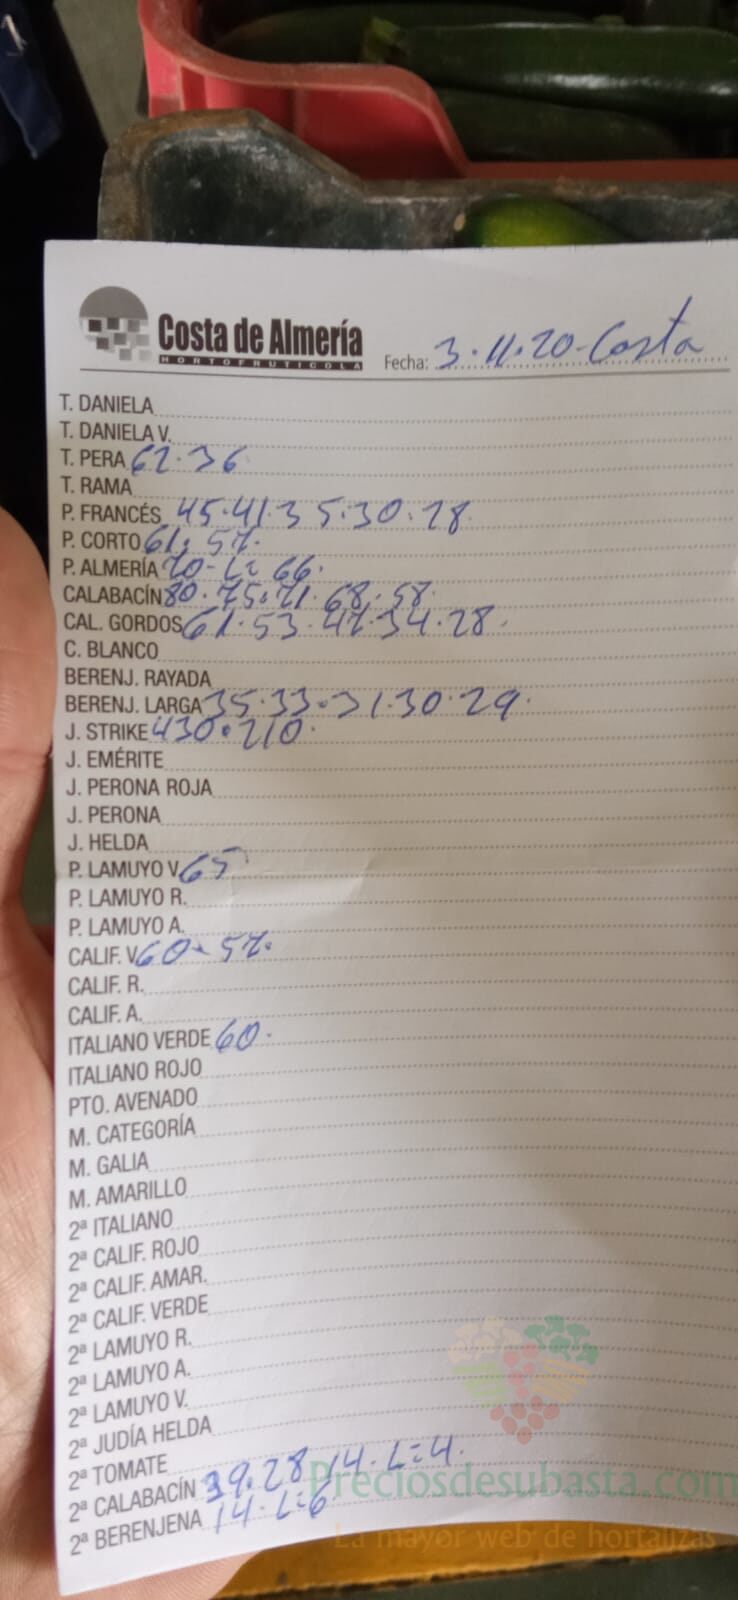 Costa de Almería
HORTOFRUTICOLA
Fecha: 3.11.20-Costa
T. DANIELA
T. DANIELA V.
T. PERA 62.36
T. RAMA
P. FRANCÉS 45.41.35.30.28
P. CORTO 61.57.
P. ALMERÍA 70-L=66.
CALABACÍN 80.75.71.68.58.
CAL. GORDOS 61.53.47.34.28.
C. BLANCO
BERENJ. RAYADA
BERENJ. LARGA 35.33.31.30.29.
J. STRIKE 430.210.
J. EMÉRITE
J. PERONA ROJA
J. PERONA
J. HELDA
P. LAMUYO V. 65
P. LAMUYO R.
P. LAMUYO A.
CALIF. V. 60-57.
CALIF. R.
CALIF. A.
ITALIANO VERDE 60.
ITALIANO ROJO
PTO. AVENADO
M. CATEGORÍA
M. GALIA
M. AMARILLO
2ª ITALIANO
2ª CALIF. ROJO
2ª CALIF. AMAR.
2ª CALIF. VERDE
2ª LAMUYO R.
2ª LAMUYO A.
2ª LAMUYO V.
2ª JUDÍA HELDA
2ª TOMATE
2ª CALABACÍN 39.28.14.L=4.
2ª BERENJENA 14.L=6
Preciosdesubasta.com
La mayor web de hortalizas